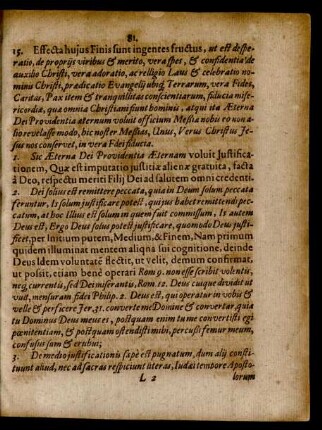 81.
15. Effecta hujus Finis sunt ingentes fructus, ut est despe-
ratio, de proprijs viribus & merito, vera spes, & confidentia de
auxilio Christi, vera adoratio, ac relligio Laus & celebratio no-
minis Christi, prædicatio Evangelij ubiq; Terrarum, vera Fides,
Caritas, Pax item & tranquillitas conscientiarum, fiducia mise-
ricordiæ, qua omnia Christiani sunt hominis, atqui ita Æterna
Dei Providentia æternum voluit officium Messiæ nobis ro non a-
lio revelasse modo, hic noster Messias, Unus, Verus Christus Je-
sus nos conservet, in vera Fdei fiducia.
1. Sic Æterna Dei Providentia Æternam voluit Justifica-
tionem, Quæ est imputatio justitiæ alienæ gratuita, facta
à Deo, respectu meriti Filij Dei ad salutem omni credenti.
2. Dei solius est remittere peccata, quia in Deum solum peccata
feruntur, Is solum justificare potest, qui jus habet remittendi pec-
catum, at hoc Illius est solum in quem fuit commissum, Is autem
Deus est, Ergo Deus solus potest justificare, quomodo Deus justi-
ficet, per Initum putem, Medium, & Finem, Nam primum
quidem illuminat mentem aliqua sui cognitione, deinde
Deus Idem voluntatē flectit, ut velit, demum confirmat,
ut possit, etiam benè operari Rom 9. non esse scribit volentis,
neq; currentis, sed Dei miserantis, Rom. 12. Deus cuique dividit ut
vult, mensuram fidei Philip. 2. Deus est, qui operatur in vobis &
velle & perficere Jer. 31. converte me Domine & convertar, quia
tu Dominus Deus meus es, postquam enim tu me convertisti egi
pœnitentiam, & postquam ostendisti mihi, percussi femur meum,
confusus sum & erubui;
3. De medio justificationis sæpè est pugnatum, dum alij consti-
tuunt aliud, nec ad sacras respiciunt literas, Iudæi tempore Aposto-
L 2 lorum